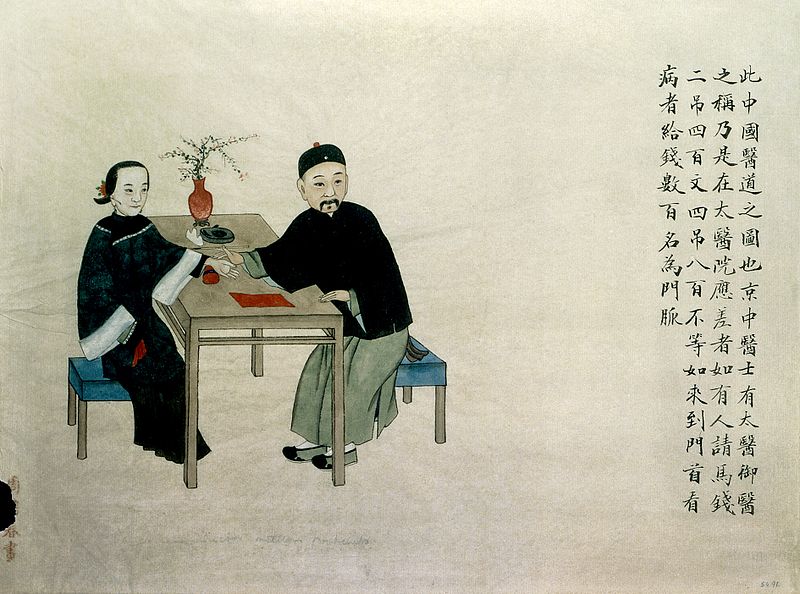 此中國醫道之圖也京中醫士有太醫御醫
之稱乃是在太醫院應差者如有人請馬錢
二吊四百文四吊八百不等如來到門首看
病者給錢數百名為門脈
春畫